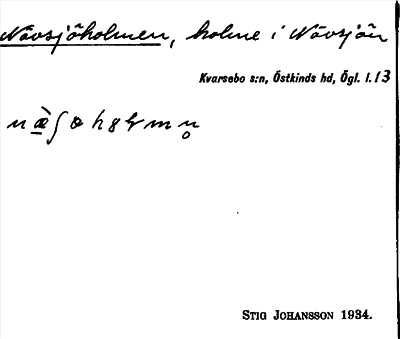 Nävsjöholmen, holme i Nävsjön
Kvarsebo s:n, Östkinds hd, Ögl. l. 13
STIG JOHANSSON 1934.